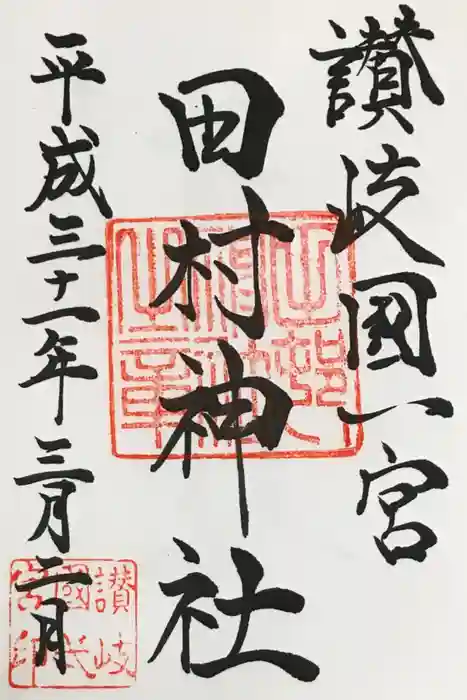 讃岐國一宮
田村神社
平成三十一年三月二日
讃岐
國一
宮印